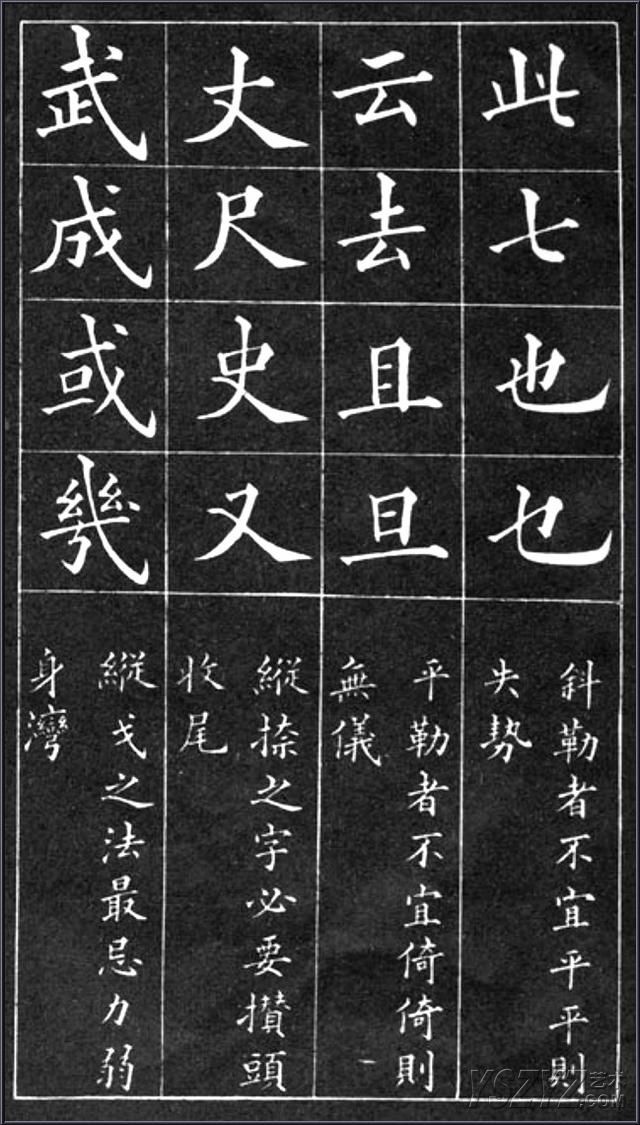 此七也乜
斜勒者不宜平平則
失勢
云去且旦
平勒者不宜倚倚則
無儀
丈尺史又
縱捺之字必要攢頭
收尾
武成或幾
縱戈之法最忌力弱
身灣
YSZYZ艺术
.COM